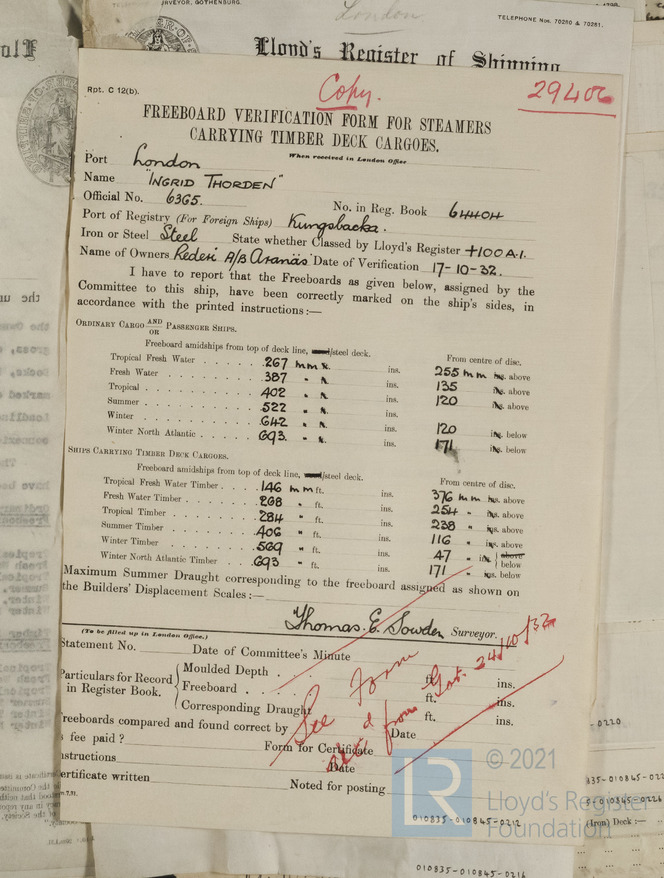 RVEYOR, GOTHENBURG.
London
TELEPHONE Nos. 70280 & 70281.
Lloyd's Register of Shipping
Rpt. C 12(b).
Copy.
29406
FREEBOARD VERIFICATION FORM FOR STEAMERS
CARRYING TIMBER DECK CARGOES.
When received in London Office
Port London
Name "INGRID THORDEN"
Official No. 6365. No. in Reg. Book 64404
Port of Registry (For Foreign Ships) Kungsbacka.
Iron or Steel Steel State whether Classed by Lloyd's Register +100A.1.
Name of Owners Rederi A/B Aranäs Date of Verification 17-10-32.
I have to report that the Freeboards as given below, assigned by the
Committee to this ship, have been correctly marked on the ship's sides, in
accordance with the printed instructions:—
ORDINARY CARGO AND/OR PASSENGER SHIPS.
Freeboard amidships from top of deck line, /steel deck. From centre of disc.
Tropical Fresh Water . . . . . . 267 mm ins. 255 mm ins. above
Fresh Water . . . . . . 387 " ins. 135 ins. above
Tropical . . . . . . 402 " ins. 120 ins. above
Summer . . . . . . 522 " ins.
Winter . . . . . . 642 " ins. 120 ins. below
Winter North Atlantic . . . . . 693 " ins. 171 ins. below
SHIPS CARRYING TIMBER DECK CARGOES.
Freeboard amidships from top of deck line, /steel deck. From centre of disc.
Tropical Fresh Water Timber . . . 146 mm ft. ins. 376 mm ins. above
Fresh Water Timber . . . . . 268 " ft. ins. 254 " ins. above
Tropical Timber . . . . . . 284 " ft. ins. 238 " ins. above
Summer Timber . . . . . . 406 " ft. ins. 116 " ins. above
Winter Timber . . . . . . 569 " ft. ins. 47 " ins. above below
Winter North Atlantic Timber . . . 693 " ft. ins. 171 " ins. below
Maximum Summer Draught corresponding to the freeboard assigned as shown on
the Builders' Displacement Scales:—
Thomas. E. Sowden Surveyor.
(To be filled up in London Office.)
Statement No. Date of Committee's Minute
Particulars for Record in Register Book.
Moulded Depth . . ft. ins.
Freeboard . . . ft. ins.
Corresponding Draught ft. ins.
See Form
from Got. 24/10/32
reeboards compared and found correct by Date
s fee paid? Form for Certificate
nstructions Date
ertificate written Noted for posting
© 2021
Lloyd's Register
Foundation
010835-010845-0212
010835-010845-0216
-0220
835-010845-022
5-010845-0224
(Iron) Deck :—